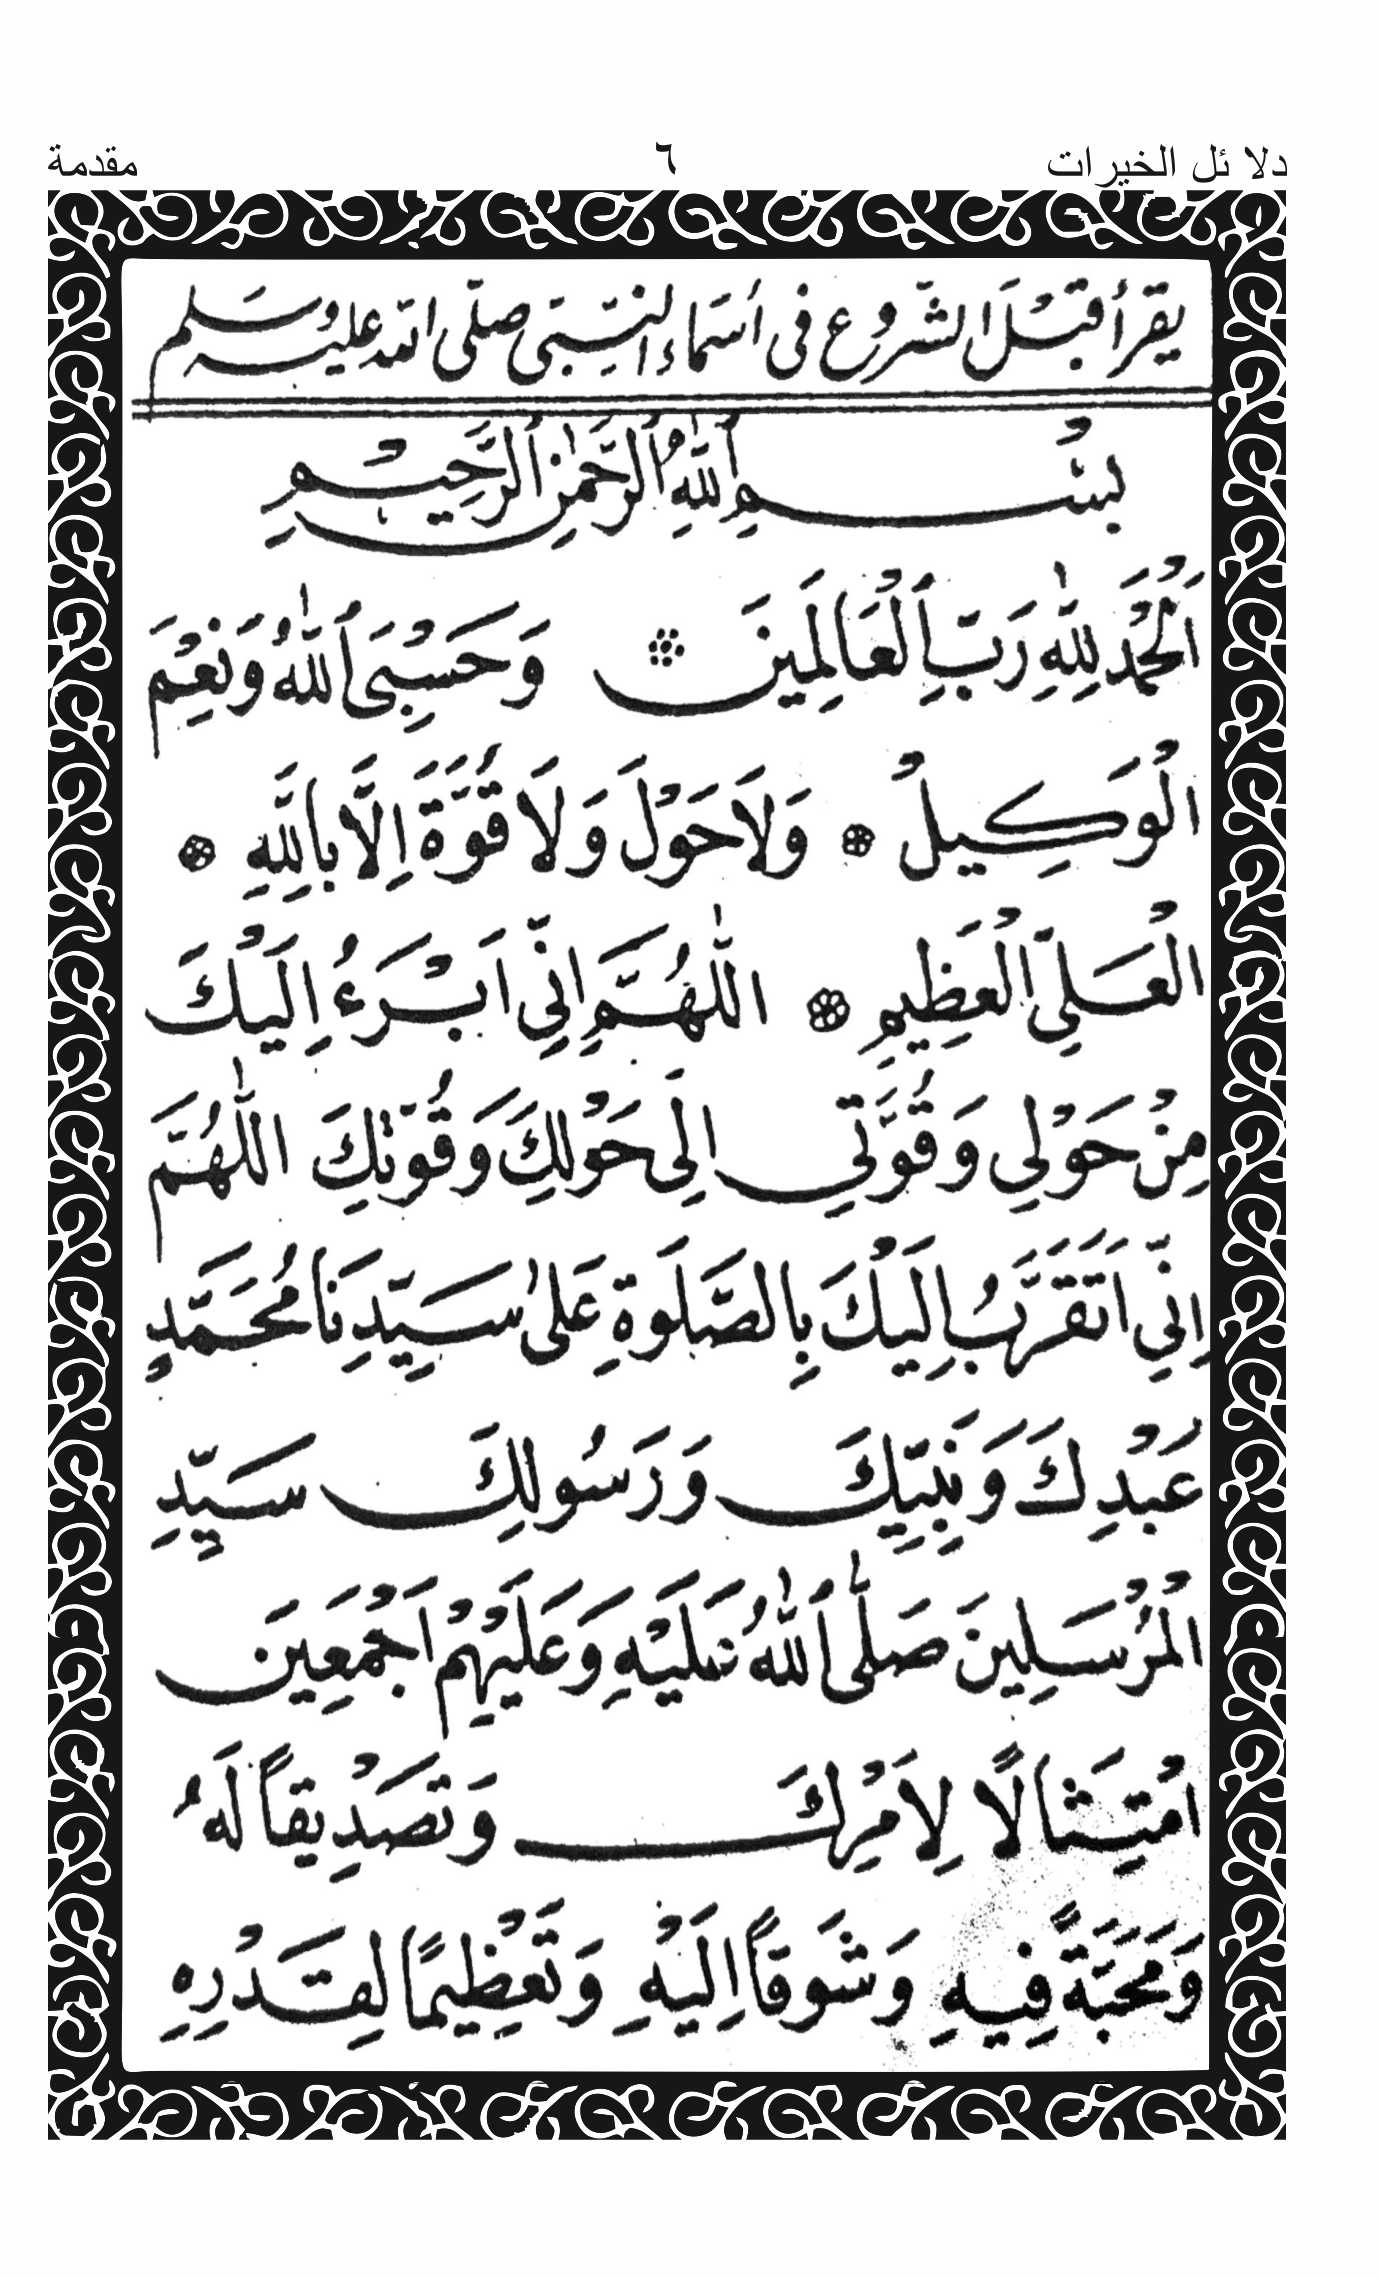 دلا ئل الخيرات ٦ مقدمة
يقرأ قبل الشروع فى أسماء النبى صلى الله عليه وسلم
بِسْمِ ٱللّٰهِ ٱلرَّحْمٰنِ ٱلرَّحِيمِ
اَلْحَمْدُ لِلّٰهِ رَبِّ ٱلْعَالَمِينَ ۞ وَحَسْبِىَ ٱللّٰهُ وَنِعْمَ
الْوَكِيلْ ۞ وَلَا حَوْلَ وَلَا قُوَّةَ اِلَّا بِاللّٰهِ ۞
الْعَلِىِّ الْعَظِيمِ ۞ اللّٰهُمَّ اِنِّى اَبْرَءُ اِلَيْكَ
مِنْ حَوْلِى وَقُوَّتِى اِلَى حَوْلِكَ وَقُوَّتِكَ اللّٰهُمَّ
اِنِّى اَتَقَرَّبُ اِلَيْكَ بِالصَّلَوةِ عَلىٰ سَيِّدِنَا مُحَمَّدٍ
عَبْدِكَ وَنَبِيِّكَ وَرَسُولِكَ سَيِّدِ
الْمُرْسَلِينَ صَلَّى ٱللّٰهُ عَلَيْهِ وَعَلَيْهِمْ اَجْمَعِينَ
امْتِثَالًا لِاَمْرِكَ وَتَصْدِيقاً لَهُ
وَمَحَبَّةً فِيهِ وَشَوقاً اِلَيْهِ وَتَعْظِيمًا لِقَدْرِهِ